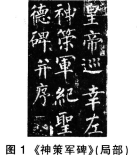 皇帝巡幸左
神策軍紀聖
德碑并序
图1《神策军碑》(局部)